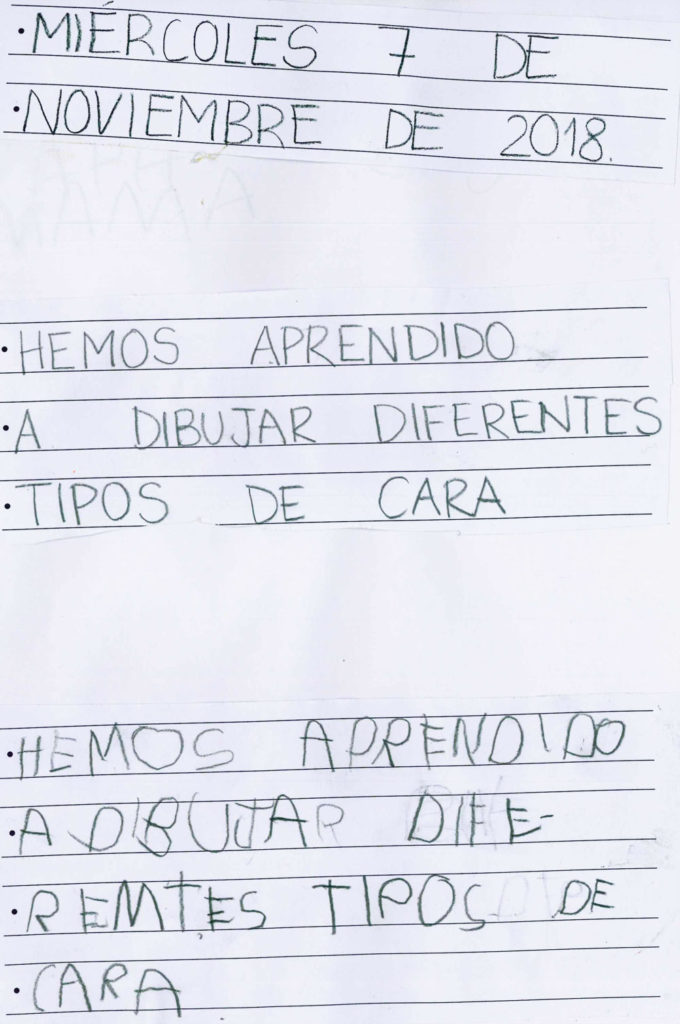 ·MIÉRCOLES 7 DE
·NOVIEMBRE DE 2018.
·HEMOS APRENDIDO
·A DIBUJAR DIFERENTES
·TIPOS DE CARA
·HEMOS APRENDIDO
·A DIBUJAR DIFE-
·REMTES TIPOS DE
·CARA